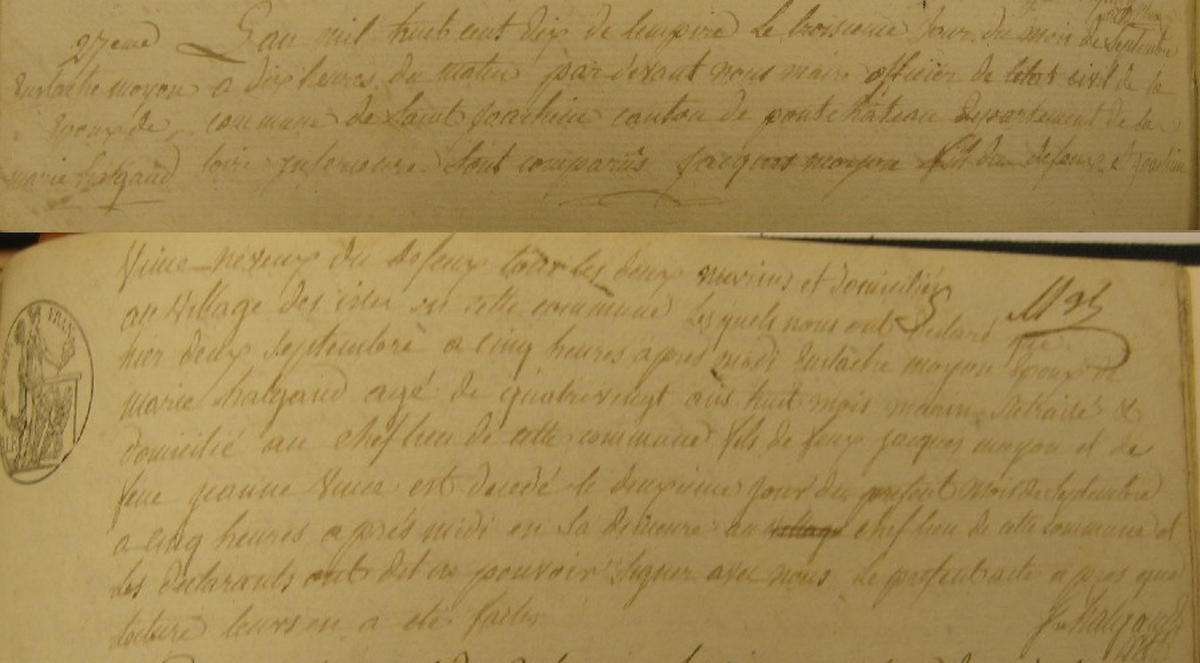 27eme
Eustache moyon
Epoux de
marie halgand
L'an mil huit cent dix de l'empire Le troisieme jour du mois de septembre
a dix heures du matin par devant nous maire officier de l'etat civil de la
commune de Saint Joachim canton de pontchateau Departement de la
loire inferieure Sont comparus jacques moyon fils du defunt et
Vince neveux du defunt tous les deux marins et domiciliés
au village des isles en cette commune Les quels nous ont Declaré
hier deux septembre a cinq heures apres midi Eustache moyon Epoux de
marie halgand agé de quatrevingt ans huit mois marin Retraité &
domicilié au cheflieu de cette commune fils de feux jacques moyon et de
feue jeanne Vince est decedé le deuxieme jour du present mois de Septembre
a cinq heures après midi en Sa demeure au village chef lieu de cette commune et
Les declarants ont dit ne pouvoir Signer avec nous le present acte apres que
lecture leurs en a eté faite
halgand
FRAN